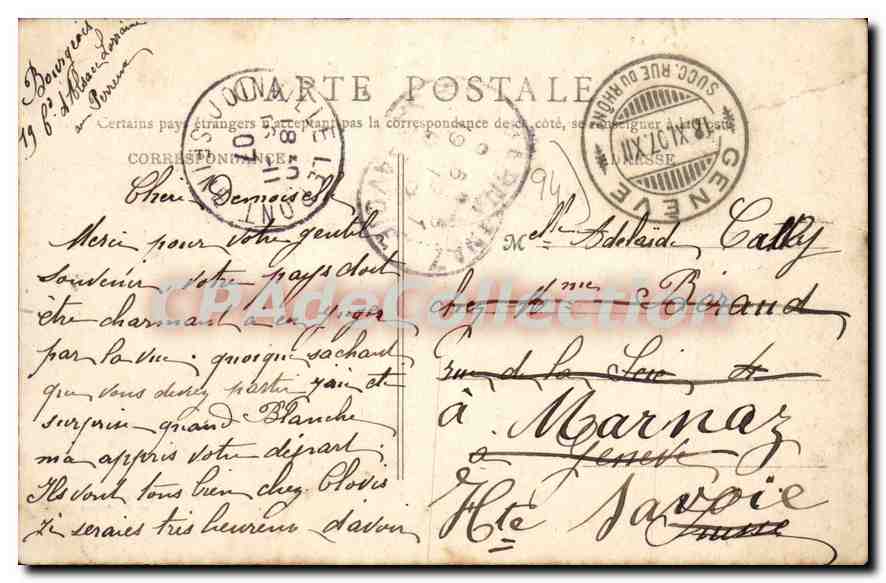 Bourgeois
19 bd d'Alsace Lorraine
au Perreux
CARTE POSTALE
Certains pays étrangers n'acceptant pas la correspondance de ce côté, se renseigner à la Poste
CORRESPONDANCE
ADRESSE
JOINVILLE LE PONT
8-11
07
GENÈVE
SUCC. RUE DU RHÔNE
XI.07.XII
94
Chère Demoiselle
Merci pour votre gentil
souvenir, votre pays doit
être charmant à en juger
par la vue. quoique sachant
que vous deviez partir j'ai été
surprise quand Blanche
m'a appris votre départ.
Ils vont tous bien chez Clovis
si serais très heureux d'avoir
Melle Adelaïde Cally
chez Mme Birand
rue de la Scie 4
à Marnaz
Genève
Hte Savoie
Suisse
CPAdeCollection